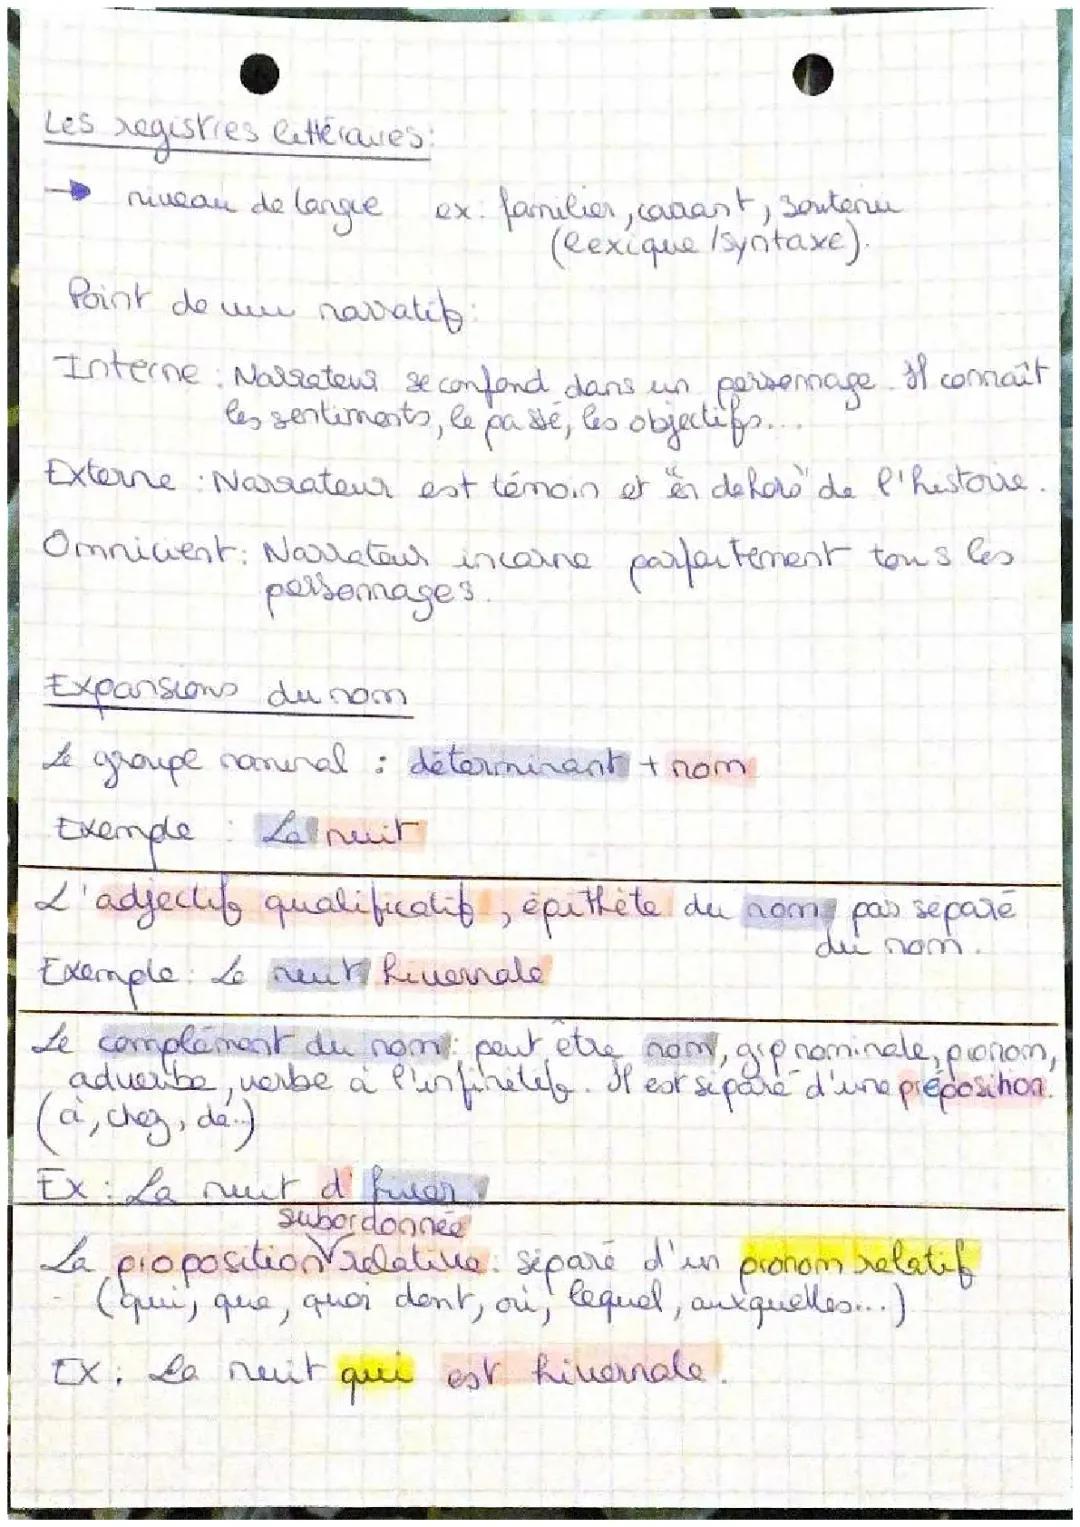 Les registres littéraires:
→ niveau de langue ex: familier, courant, soutenu
(lexique/syntaxe).
Point de vue narratif:
Interne : Narrateur se confond dans un personnage. Il connaît
les sentiments, le passé, les objectifs...
Externe : Narrateur est témoin et "en dehors" de l'histoire.
Omnicient: Narrateur incarne parfaitement tous les
personnages.
Expansions du nom
Le groupe nominal : déterminant + nom
Exemple : La nuit
L'adjectif qualificatif, épithète du nom, pas séparé
du nom.
Exemple: Le nuit hivernale
Le complément du nom: peut être nom, grp nominale, pronom,
adverbe, verbe à l'infinitif. Il est séparé d'une préposition.
(à, chez, de...)
Ex : La nuit d'hiver
subordonnée
La proposition V relative: séparé d'un pronom relatif
(qui, que, quoi dont, où, lequel, auxquelles...)
Ex: La nuit qui est hivernale.